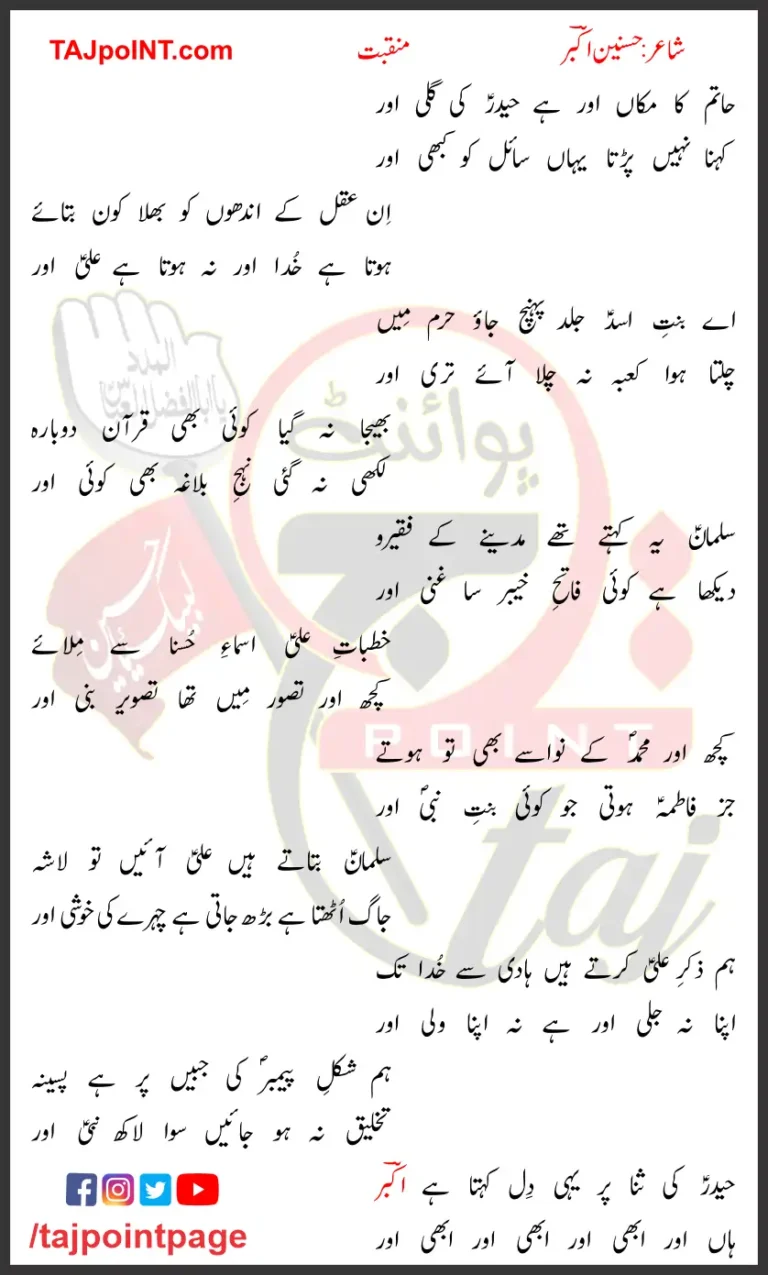 شاعر: حسنین اکبرؔ
منقبت
TAJpoINT.com
حاتم کا مکاں اور ہے حیدرؑ کی گلی اور
کہنا نہیں پڑتا یہاں سائل کو کبھی اور
اِن عقل کے اندھوں کو بھلا کون بتائے
ہوتا ہے خُدا اور نہ ہوتا ہے علیؑ اور
اے بنتِ اسدؑ جلد پہنچ جاؤ حرم مِیں
چلتا ہوا کعبہ نہ چلا آئے تری اور
بھیجا نہ گیا کوئی بھی قرآن دوبارہ
لکھی نہ گئی نہجِ بلاغہ بھی کوئی اور
سلمانؑ یہ کہتے تھے مدینے کے فقیرو
دیکھا ہے کوئی فاتحِ خیبر سا غنی اور
خطباتِ علیؑ اسماءِ حُسنا سے مِلائے
کچھ اور تصور مِیں تھا تصویر بنی اور
کچھ اور محمدؐ کے نواسے بھی تو ہوتے
جز فاطمہؑ ہوتی جو کوئی بنتِ نبیؐ اور
سلمانؑ بتاتے ہیں علیؑ آئیں تو لاشہ
جاگ اُٹھتا ہے بڑھ جاتی ہے چہرے کی خوشی اور
ہم ذکرِ علیؑ کرتے ہیں ہادی سے خُدا تک
اپنا نہ جلی اور ہے نہ اپنا ولی اور
ہم شکلِ پیمبرؐ کی جبیں پر ہے پسینہ
تخلیق نہ ہو جائیں سوا لاکھ نبیؑ اور
حیدرؑ کی ثنا پر یہی دِل کہتا ہے اکبرؔ
ہاں اور ابھی اور ابھی اور ابھی اور
/tajpointpage
المدد
یا ابالفضل العباسؑ
لبیک یا حسینؑ
پوائنٹ
تاج
POINT
taj